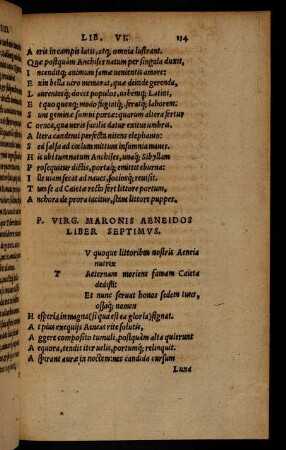 LIB. VI. 154
A eris in campis latis, atq; omnia lustrant.
Q uæ postquàm Anchises natum per singula duxit,
I ncenditq; animum famæ uenientis amore:
E xin bella uiro memorat, quæ deinde gerenda,
L aurentesq; docet populos, urbemq; Latini,
E t quo quenq; modo fugiatq;, feratq; laborem.
S unt geminæ somni portæ: quarum altera fertur
C ornea, qua ueris facilis datur exitus umbris.
A ltera candenti perfecta nitens elephanto:
S ed falsa ad cœlum mittunt insomnia manes.
H is ubi tum natum Anchises, unaq; Sibyllam
P rosequitur dictis, portaq; emittit eburna:
I lle uiam secat ad naues, sociosq; reuisit.
T um se ad Caietæ recto fert littore portum,
A nchora de prora iacitur, stant littore puppes.
P. VIRG. MARONIS AENEIDOS
LIBER SEPTIMVS.
V quoque littoribus nostris Aeneia
nutrix
T Aeternam moriens famam Caieta
dedisti:
Et nunc seruat honos sedem tuus,
ossaq; nomen
H esperia in magna (si qua est ea gloria) signat.
A t pius exequijs Aeneas rite solutis,
A ggere composito tumuli, postquàm alta quierunt
A equora, tendit iter uelis, portumq; relinquit.
A spirant auræ in noctem nec candida cursum
Luna